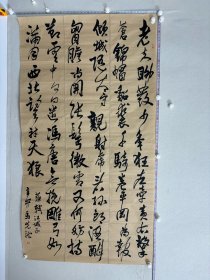 老夫聊發少年狂左牽黃右擎
蒼錦帽貂裘千騎卷平岡為報
傾城隨太守親射虎看孫郎酒酣
胸膽尚開張鬢微霜又何妨持
節雲中何日遣馮唐會挽雕弓如
滿月西北望射天狼
蘇軾詞